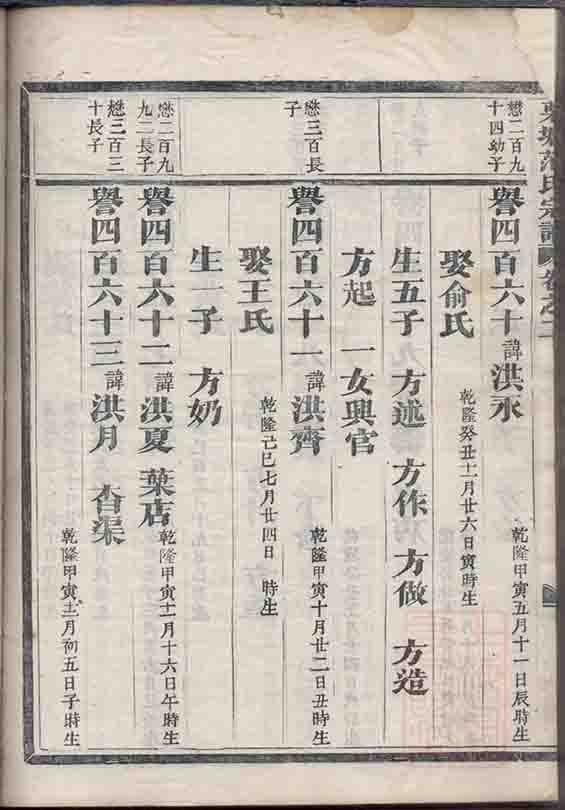 氏宗譜 卷之二
懋二百九
十四幼子
譽四百六十 諱 洪永 乾隆甲寅五月十一日辰時生
娶俞氏 乾隆癸丑十一月廿六日寅時生
生五子 方述 方作 方做 方造
方起 一女興官
懋三百長
子
譽四百六十一 諱 洪齊 乾隆甲寅十月廿二日丑時生
娶王氏 乾隆己巳七月廿四日 時生
生一子 方奶
懋二百九
九二長子
譽四百六十二 諱 洪夏 葉店 乾隆甲寅十一月十六日午時生
懋三百三
十長子
譽四百六十三 諱 洪月 杏渠 乾隆甲寅十二月初五日子時生